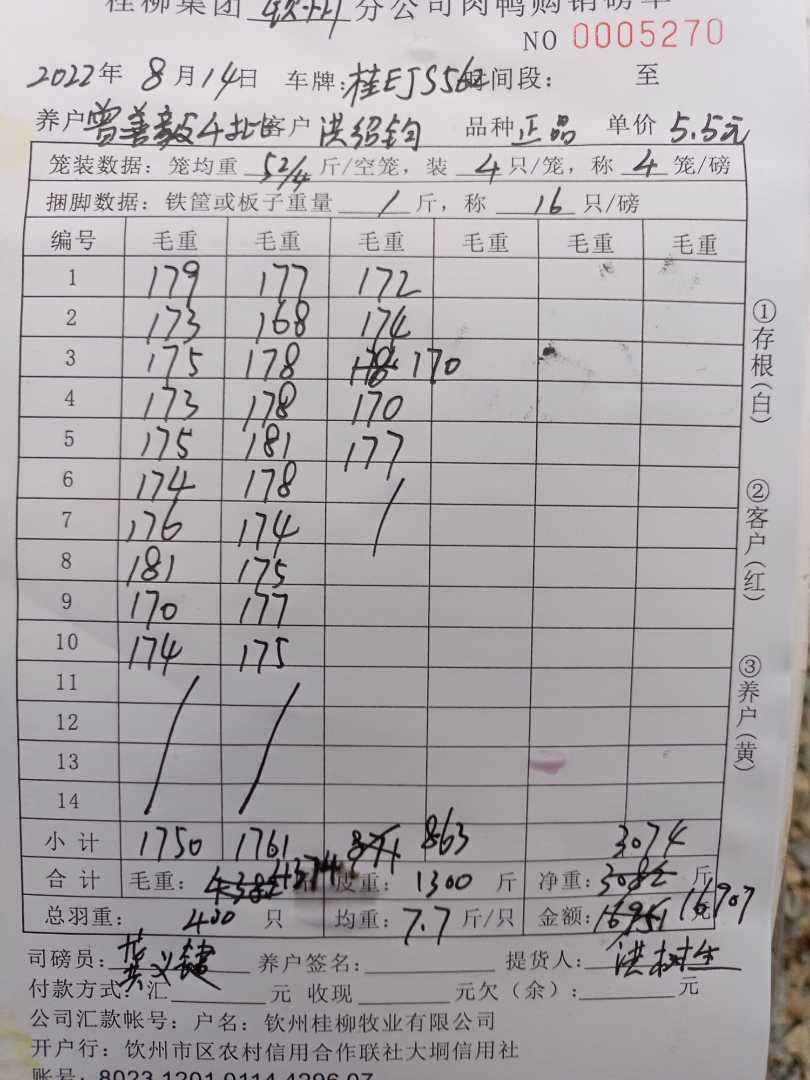 桂柳集团 钦州 分公司肉鸭购销磅单
NO 0005270
2022年 8月14日 车牌:桂EJS562 时间段: 至
养户 曾善毅 客户 洪绍钧 品种 正品 单价 5.5元
笼装数据:笼均重 52/4 斤/空笼,装 4 只/笼,称 4 笼/磅
捆脚数据:铁筐或板子重量 / 斤,称 16 只/磅
编号 毛重 毛重 毛重 毛重 毛重 毛重
1 179 177 172
2 173 168 174
3 175 178 170
4 173 178 170
5 175 181 177
6 174 178 /
7 176 174
8 181 175
9 170 177
10 174 175
11 / /
12
13
14
小计 1750 1761 871 863 3074
合计 毛重: 4382 4374 皮重: 1300 斤 净重: 3082 斤
总羽重: 400 只 均重: 7.7 斤/只 金额: 16951 16907 元
司磅员: 养户签名: 提货人: 洪树生
付款方式:汇 元 收现 元欠(余): 元
公司汇款帐号:户名:钦州桂柳牧业有限公司
开户行:钦州市区农村信用合作联社大垌信用社
账号:8023 1201 0114 4296 07
①存根(白)
②客户(红)
③养户(黄)